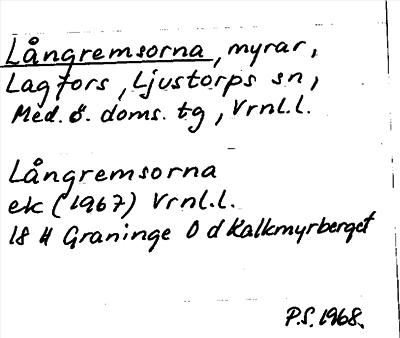 Långremsorna, myrar,
Lagfors, Ljustorps sn,
Med. ö. doms. tg, Vrnl.l.
Långremsorna
ek (1967) Vrnl.l.
18 H Graninge O d Kalkmyrberget
P.S. 1968.